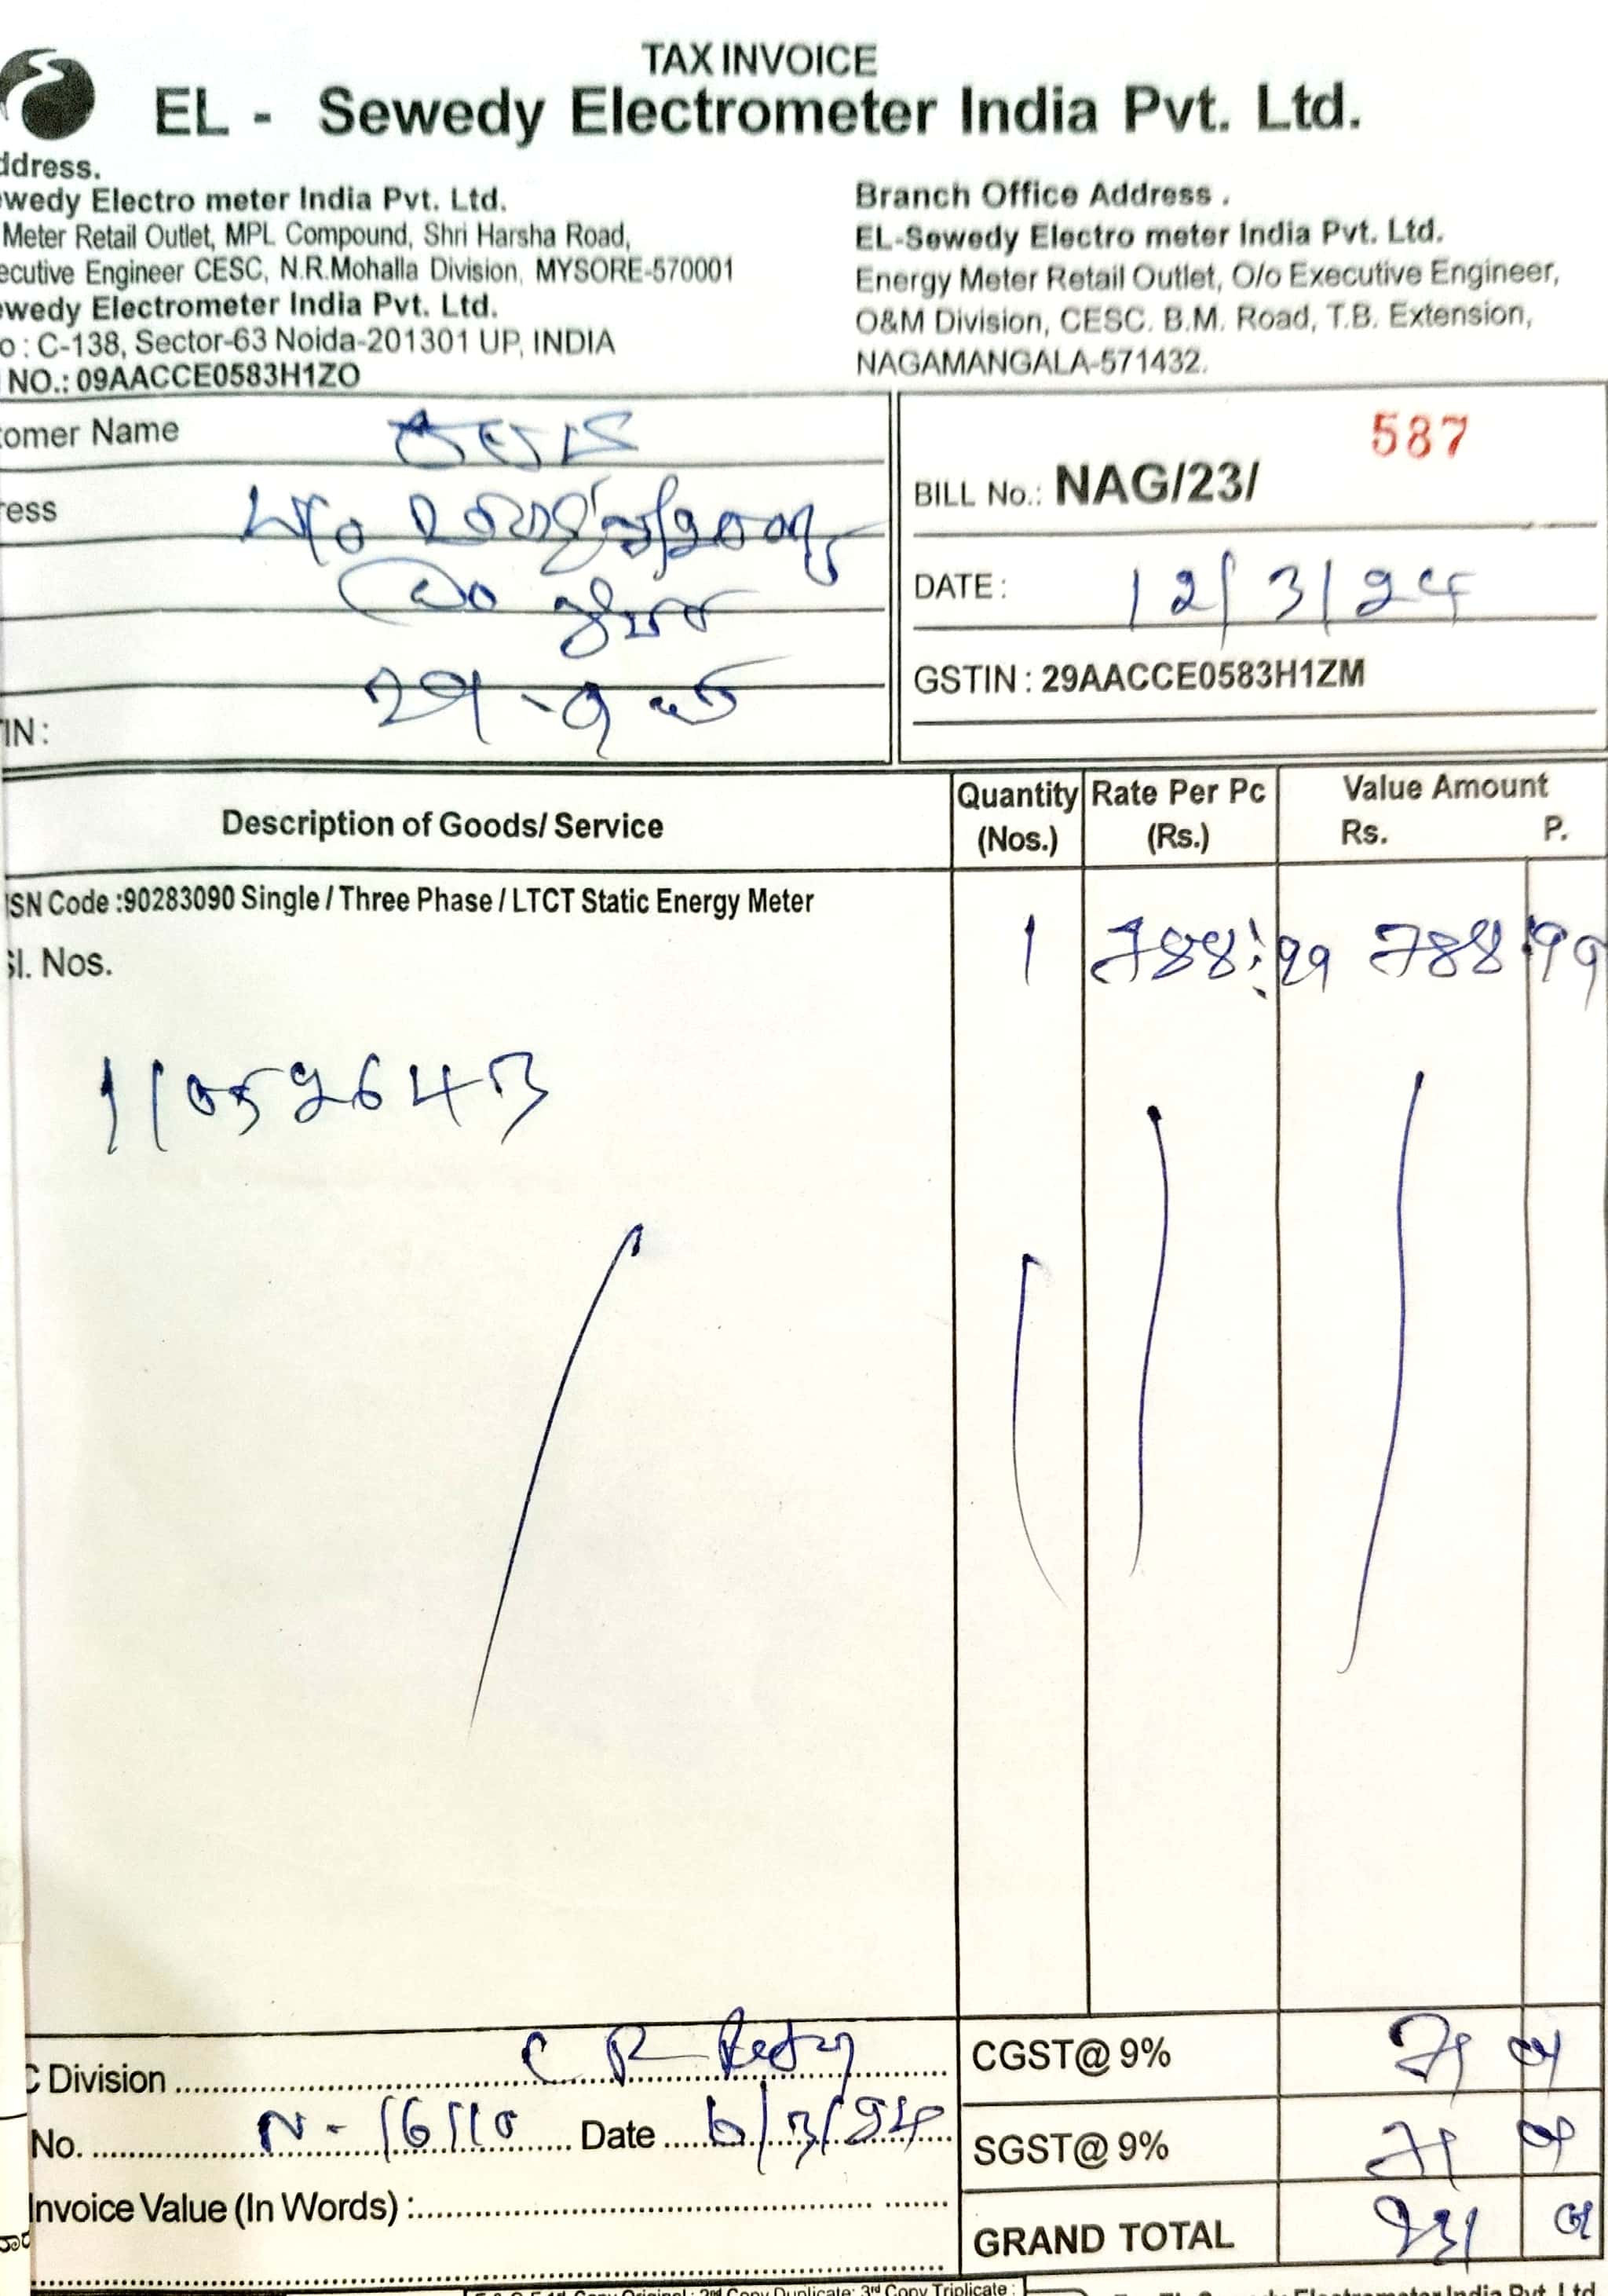 TAX INVOICE
EL - Sewedy Electrometer India Pvt. Ltd.
ddress.
wedy Electro meter India Pvt. Ltd.
Meter Retail Outlet, MPL Compound, Shri Harsha Road,
ecutive Engineer CESC, N.R.Mohalla Division, MYSORE-570001
wedy Electrometer India Pvt. Ltd.
o : C-138, Sector-63 Noida-201301 UP, INDIA
NO.: 09AACCE0583H1ZO
Branch Office Address .
EL-Sewedy Electro meter India Pvt. Ltd.
Energy Meter Retail Outlet, O/o Executive Engineer,
O&M Division, CESC. B.M. Road, T.B. Extension,
NAGAMANGALA-571432.
omer Name
ress
W/o
IN :
587
BILL No.: NAG/23/
DATE : 12/3/24
GSTIN : 29AACCE0583H1ZM
Description of Goods/ Service
Quantity (Nos.)
Rate Per Pc (Rs.)
Value Amount
Rs. P.
SN Code :90283090 Single / Three Phase / LTCT Static Energy Meter
Sl. Nos.
1 788 : 99 788 99
11052643
C Division
CGST@ 9%
No. N - 16110 Date 6/3/24
SGST@ 9%
Invoice Value (In Words) :
GRAND TOTAL 931